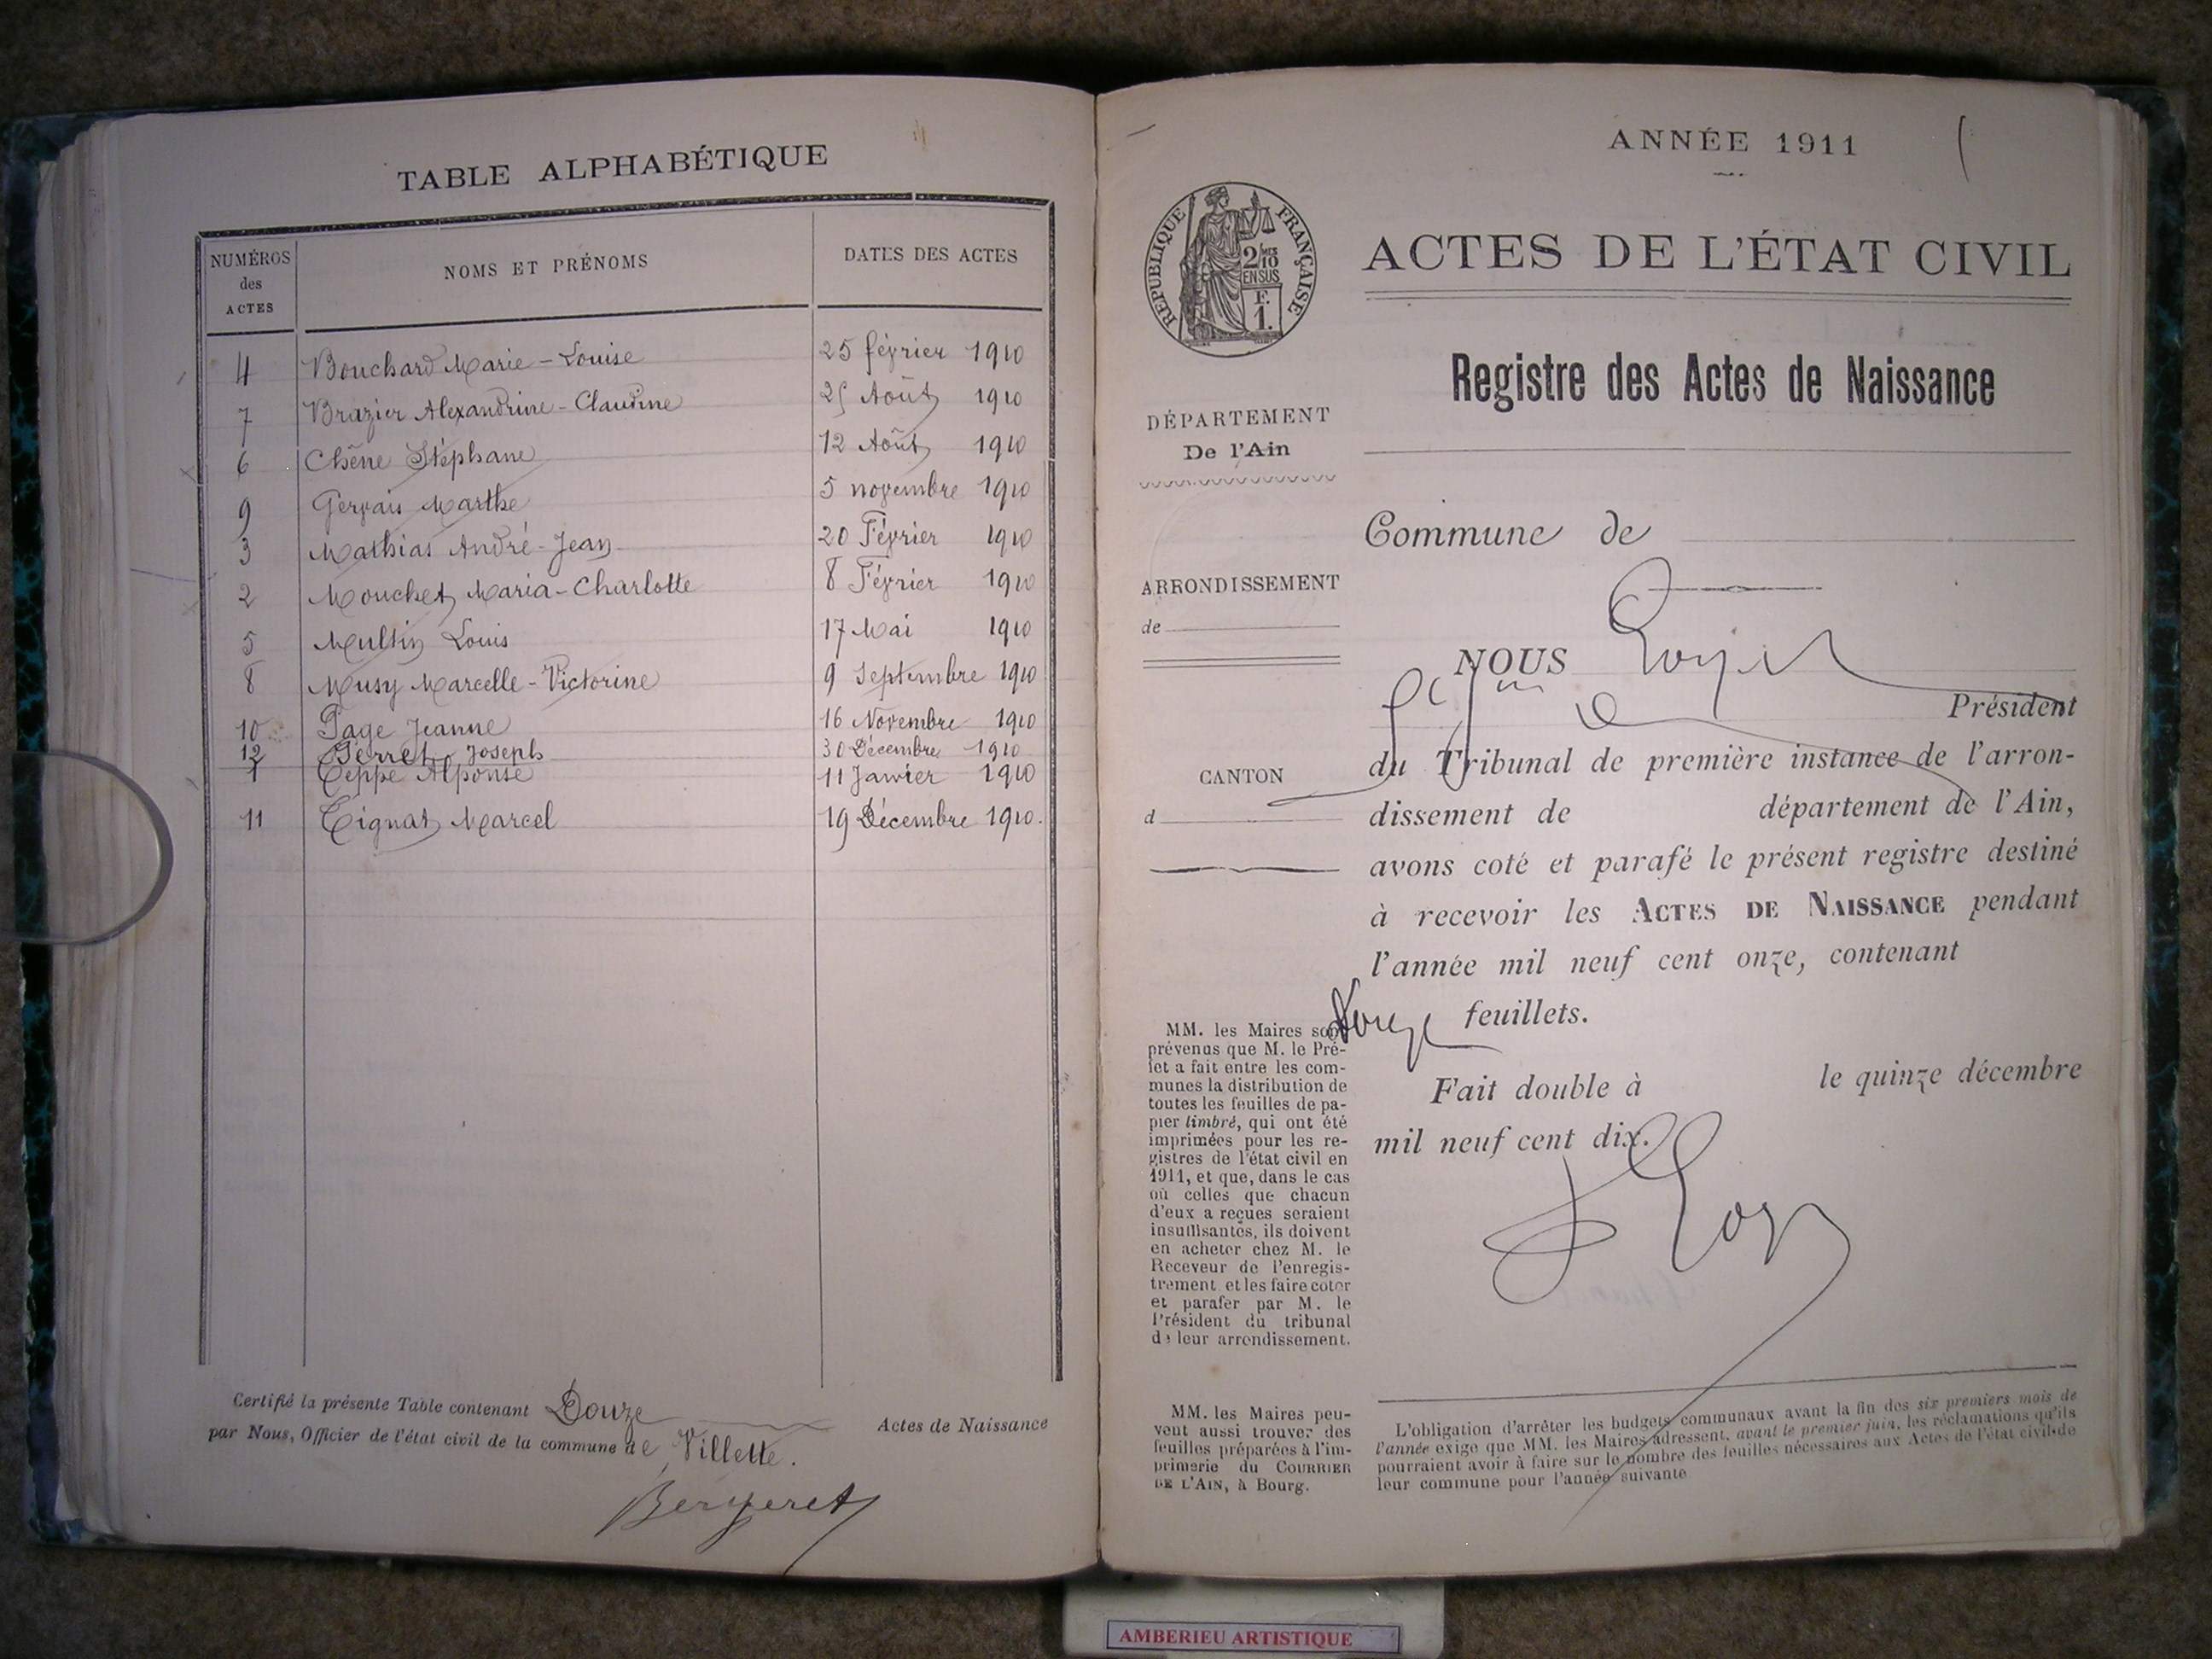 TABLE ALPHABÉTIQUE
NUMÉROS des ACTES NOMS ET PRÉNOMS DATES DES ACTES
4 Bouchard Marie-Louise 25 février 1910
7 Brazier Alexandrine-Claudine 25 Août 1910
6 Chêne Stéphane 12 Août 1910
9 Gervais Marthe 5 novembre 1910
3 Mathias André-Jean 20 Février 1910
2 Mouchet Maria-Charlotte 8 Février 1910
5 Multin Louis 17 Mai 1910
8 Musy Marcelle-Victorine 9 Septembre 1910
10 Page Jeanne 16 Novembre 1910
12 Perret Joseph 30 Décembre 1910
1 Teppe Alponse 11 Janvier 1910
11 Tignat Marcel 19 Décembre 1910.
Certifié la présente Table contenant Douze Actes de Naissance
par Nous, Officier de l'état civil de la commune de Villette.
Bergeret
ANNÉE 1911
RÉPUBLIQUE FRANÇAISE
2/10
EN SUS
F.
1.
ACTES DE L'ÉTAT CIVIL
Registre des Actes de Naissance
DÉPARTEMENT
De l'Ain
ARRONDISSEMENT
de
CANTON
d
Commune de
NOUS
Président
du Tribunal de première instance de l'arron-
dissement de département de l'Ain,
avons coté et parafé le présent registre destiné
à recevoir les ACTES DE NAISSANCE pendant
l'année mil neuf cent onze, contenant
Douze feuillets.
Fait double à le quinze décembre
mil neuf cent dix.
MM. les Maires sont
prévenus que M. le Pré-
fet a fait entre les com-
munes la distribution de
toutes les feuilles de pa-
pier timbré, qui ont été
imprimées pour les re-
gistres de l'état civil en
1911, et que, dans le cas
où celles que chacun
d'eux a reçues seraient
insuffisantes, ils doivent
en acheter chez M. le
Receveur de l'enregis-
trement et les faire coter
et parafer par M. le
Président du tribunal
de leur arrondissement.
MM. les Maires peu-
vent aussi trouver des
feuilles préparées à l'im-
primerie du COURRIER
DE L'AIN, à Bourg.
L'obligation d'arrêter les budgets communaux avant la fin des six premiers mois de
l'année exige que MM. les Maires adressent, avant le premier juin, les réclamations qu'ils
pourraient avoir à faire sur le nombre des feuilles nécessaires aux Actes de l'état civil de
leur commune pour l'année suivante
AMBERIEU ARTISTIQUE